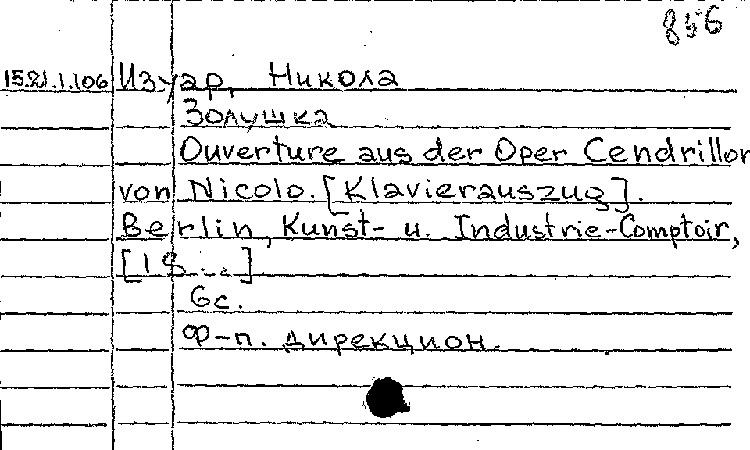 856
15.21.1.106 Изуар, Никола
Золушка
Ouverture aus der Oper Cendrillon
von Nicolo. [Klavierauszug].
Berlin, Kunst- u. Industrie-Comptoir,
[18...]
6с.
Ф-п. дирекцион.